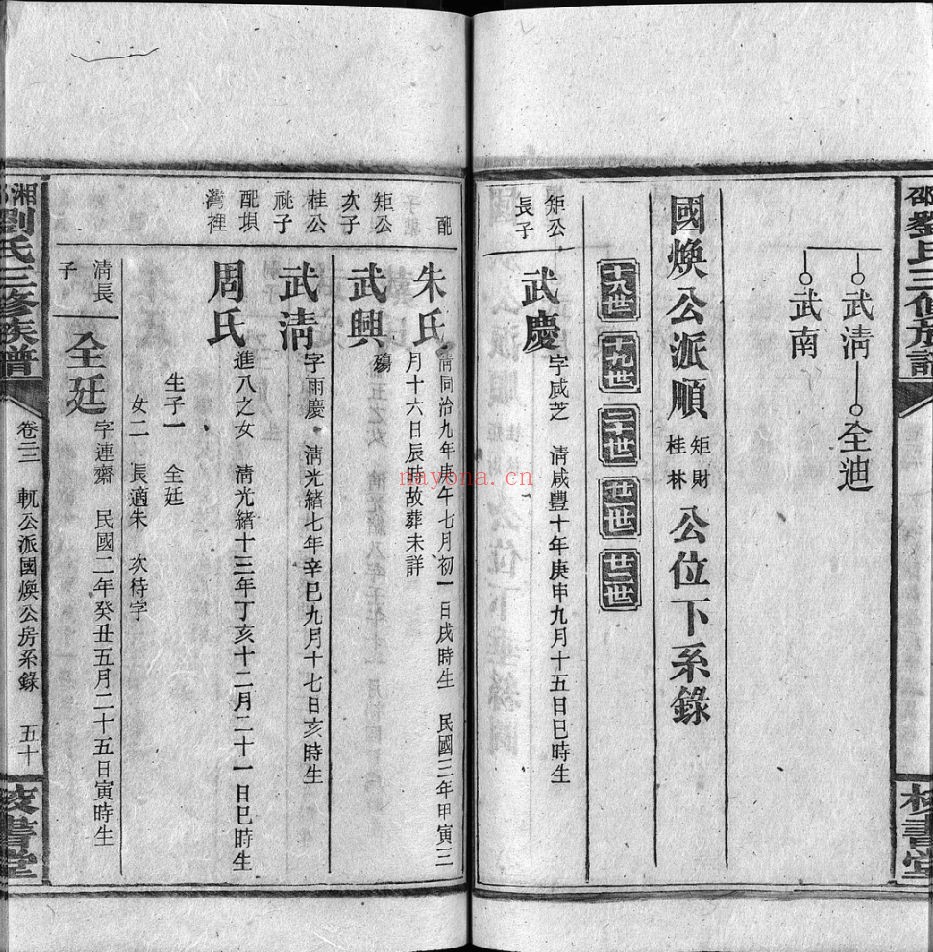 武清 全迪
武南
國煥公派順矩財桂林公位下系錄
十八世 十九世 二十世 廿一世 廿二世
矩公長子
武慶 字咸芝 清咸豐十年庚申九月十五日巳時生
配
朱氏 清同治九年庚午七月初一日戌時生 民國三年甲寅三
月十六日辰時故葬未詳
矩公次子
武興 殤
桂公祧子
武清 字雨慶 清光緒七年辛巳九月十七日亥時生
配垻灣裡
周氏 進八之女 清光緒十三年丁亥十二月二十一日巳時生
生子一 全廷
女二 長適朱 次待字
清長子
全廷 字連齋 民國二年癸丑五月二十五日寅時生
湘邵劉氏三修族譜
卷三三 軏公派國煥公房系錄 五十
校書堂
nayona.cn